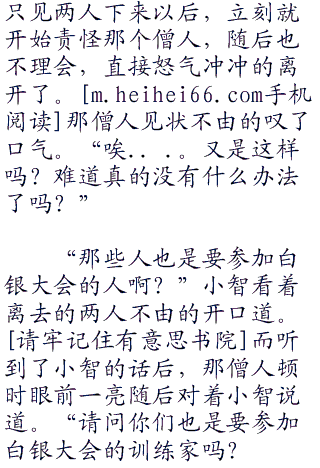 只见两人下来以后，立刻就
开始责怪那个僧人，随后也
不理会，直接怒气冲冲的离
开了。[m.heihei66.com手机
阅读]那僧人见状不由的叹了
口气。“唉...。又是这样
吗？难道真的没有什么办法
了吗？”
“那些人也是要参加白
银大会的人啊？”小智看着
离去的两人不由的开口道。
[请牢记住有意思书院]而听
到了小智的话后，那僧人顿
时眼前一亮随后对着小智说
道。“请问你们也是要参加
白银大会的训练家吗？